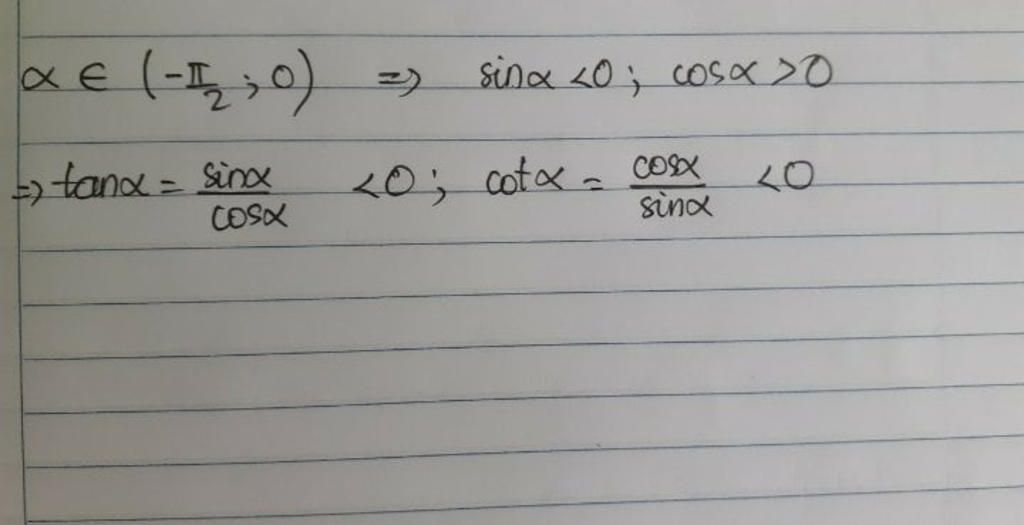 α ∈ (-π/2 ; 0) => sinα <0 ; cosα >0
=> tanα = sinα/cosα <0 ; cotα = cosα/sinα <0